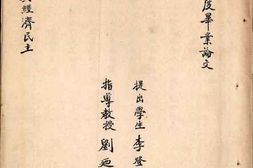 度畢業論文
經濟民主
提出學生 李登
指導教授 劉